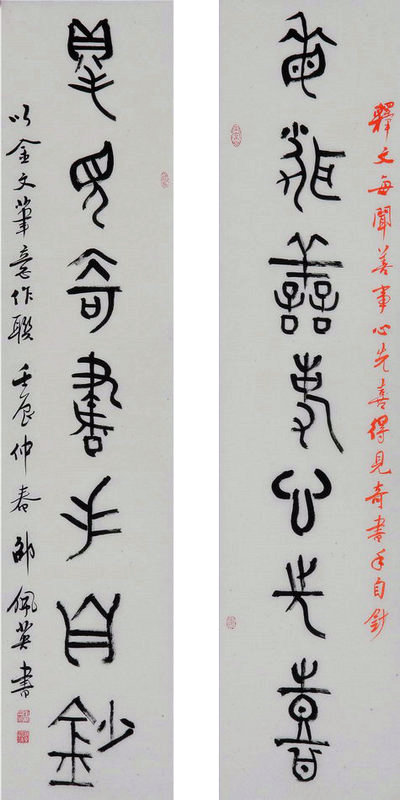 釋文每聞善事心先喜得見奇書手自鈔
每聞善事心先喜
得見奇書手自鈔
以金文筆意作聯 壬辰仲春 邵佩英書